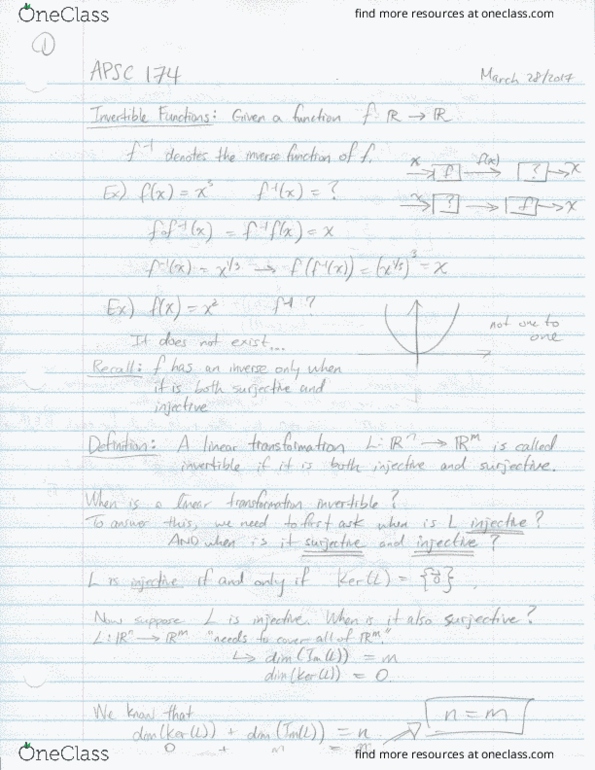 OneClass find more resources at oneclass.com
①
APSC 174 March 28/2017
Invertible Functions: Given a function f: ℝ → ℝ
f⁻¹ denotes the inverse function of f.
x → [f] → f(x) → [?] → x
Ex) f(x) = x³ f⁻¹(x) = ?
x → [?] → [f] → x
f∘f⁻¹(x) = f⁻¹f(x) = x
f⁻¹(x) = x^(1/3) → f(f⁻¹(x)) = (x^(1/3))³ = x
Ex) f(x) = x² f⁻¹ ?
not one to
one
It does not exist...
Recall: f has an inverse only when
it is both surjective and
injective
Definition: A linear transformation L: ℝⁿ → ℝᵐ is called
invertible if it is both injective and surjective.
When is a linear transformation invertible?
To answer this, we need to first ask when is L injective?
AND when is it surjective and injective?
L is injective if and only if Ker(L) = {0⃗}.
Now suppose L is injective. When is it also surjective?
L: ℝⁿ → ℝᵐ "needs to cover all of ℝᵐ."
↳ dim(Im(L)) = m
dim(ker(L)) = 0
We know that
n = m
dim(ker(L)) + dim(Im(L)) = n
0 + m = n
OneClass find more resources at oneclass.com